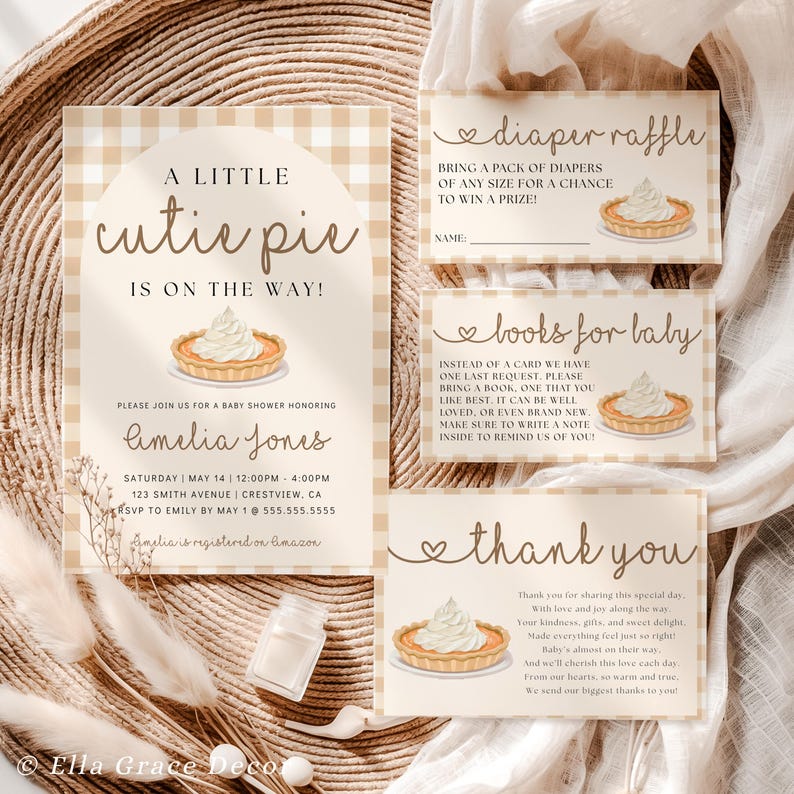 A LITTLE
cutie pie
IS ON THE WAY!
PLEASE JOIN US FOR A BABY SHOWER HONORING
Amelia Jones
SATURDAY | MAY 14 | 12:00PM - 4:00PM
123 SMITH AVENUE | CRESTVIEW, CA
RSVP TO EMILY BY MAY 1 @ 555.555.5555
Amelia is registered on Amazon
diaper raffle
BRING A PACK OF DIAPERS
OF ANY SIZE FOR A CHANCE
TO WIN A PRIZE!
NAME:
books for baby
INSTEAD OF A CARD WE HAVE
ONE LAST REQUEST. PLEASE
BRING A BOOK, ONE THAT YOU
LIKE BEST. IT CAN BE WELL
LOVED, OR EVEN BRAND NEW.
MAKE SURE TO WRITE A NOTE
INSIDE TO REMIND US OF YOU!
thank you
Thank you for sharing this special day,
With love and joy along the way.
Your kindness, gifts, and sweet delight,
Made everything feel just so right!
Baby's almost on their way,
And we'll cherish this love each day.
From our hearts, so warm and true,
We send our biggest thanks to you!
© Ella Grace Decor